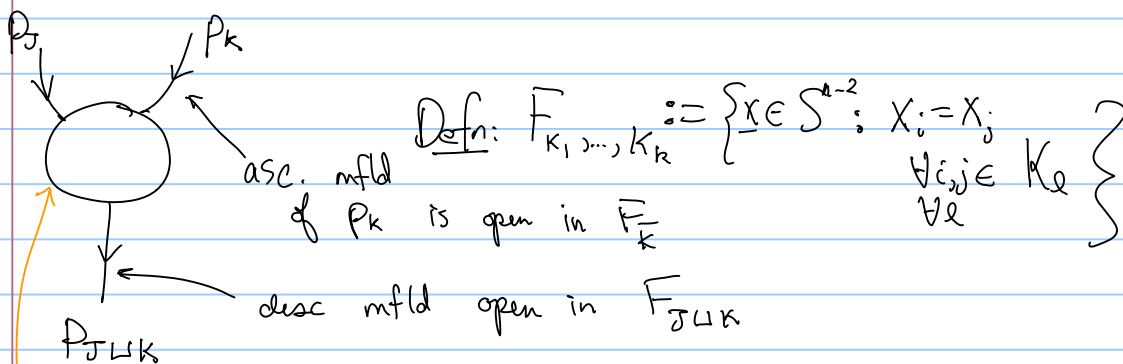 P_J P_K
Defn: F_{K_1,...,K_k} := {x ∈ S^{n-2} : x_i = x_j
∀i,j ∈ K_ℓ }
∀ℓ
asc. mfld
of P_K is open in F_K
desc mfld open in F_{J⊔K}
P_{J⊔K}